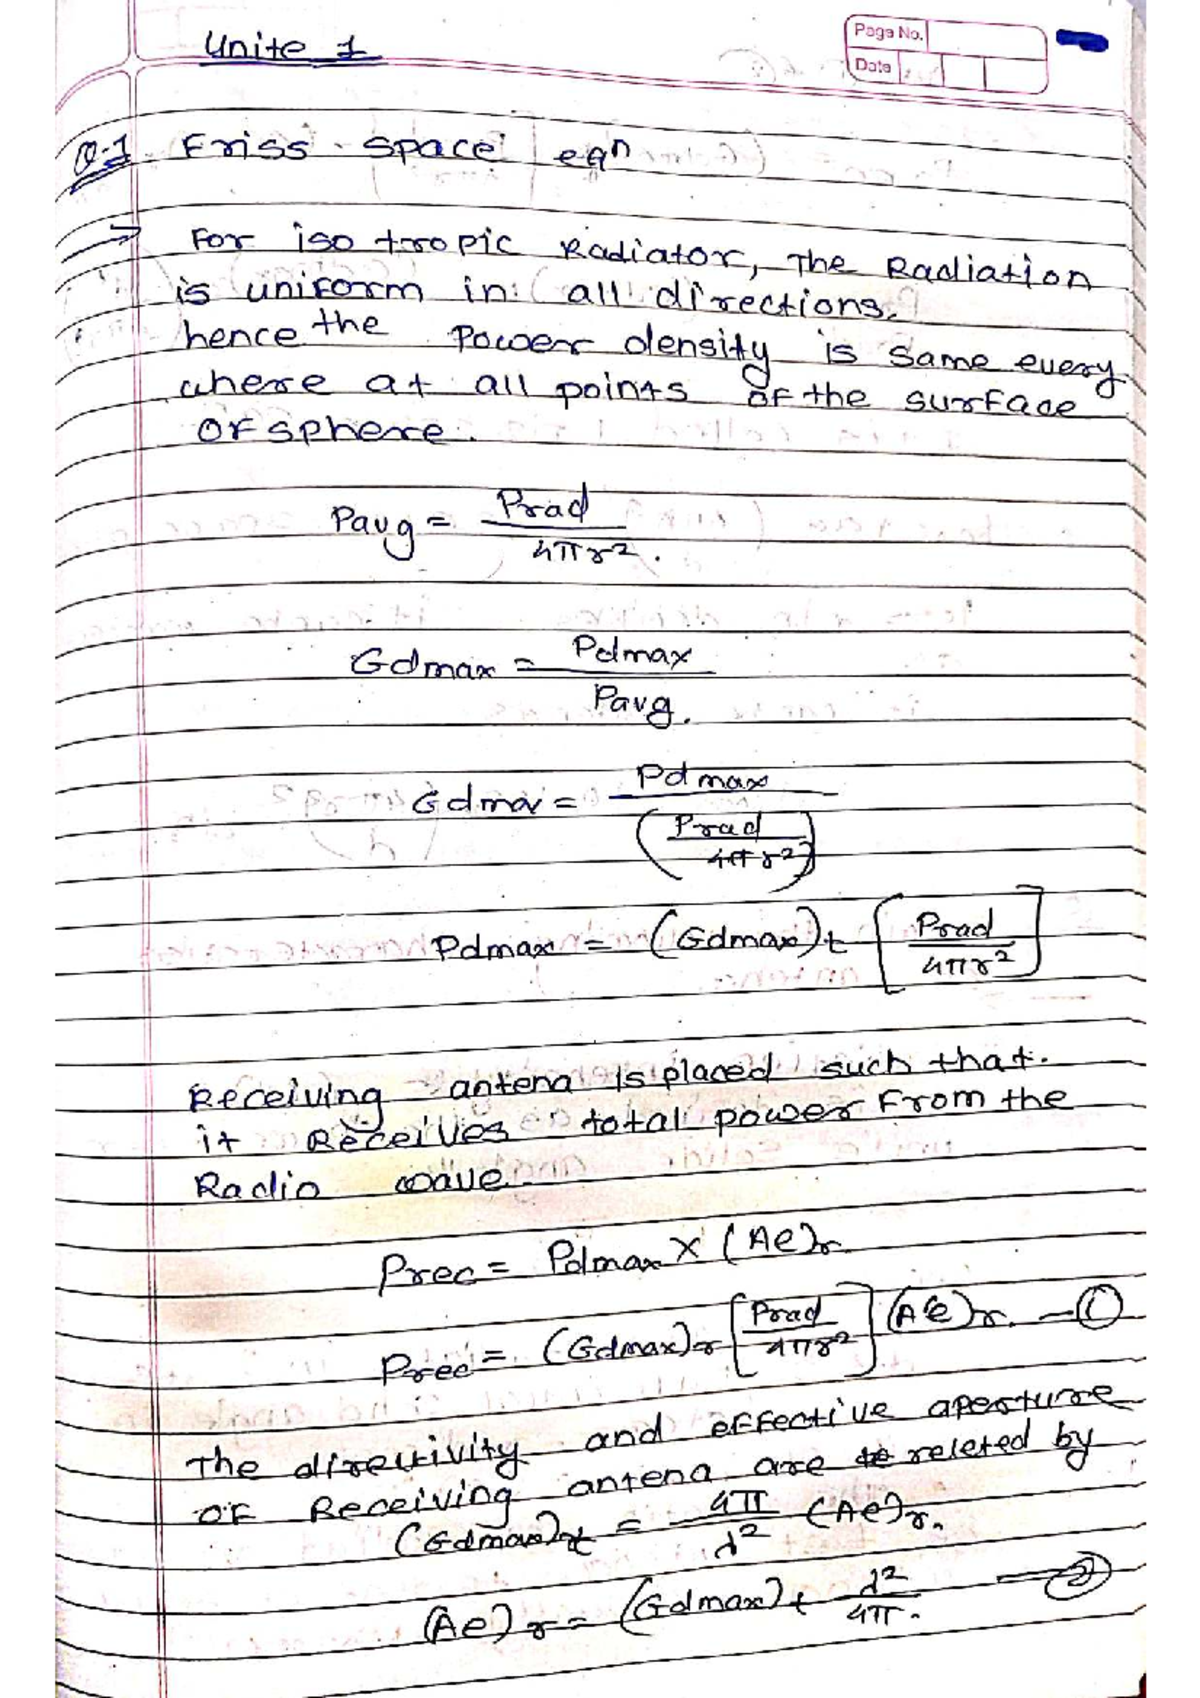 Unite 1
Page No.
Date
Q.1 Friss space eqn
→ For isotropic Radiator, The Radiation
is uniform in all directions.
hence the Power density is same every
where at all points of the surface
of sphere.
Pavg = Prad / 4πr².
Gdmax = Pdmax / Pavg.
Gdmax = Pdmax / (Prad / 4πr²)
Pdmax = (Gdmax)t [Prad / 4πr²]
Receiving antena is placed such that.
it Receives total power from the
Radio wave.
Prec = Pdmax X (Ae)r.
Prec = (Gdmax)r [Prad / 4πr²] (Ae)r. — ①
The directivity and effective aperture
of Receiving antena are releted by
(Gdmax)t = 4π / λ² (Ae)r.
(Ae)r = (Gdmax)t λ² / 4π. — ②